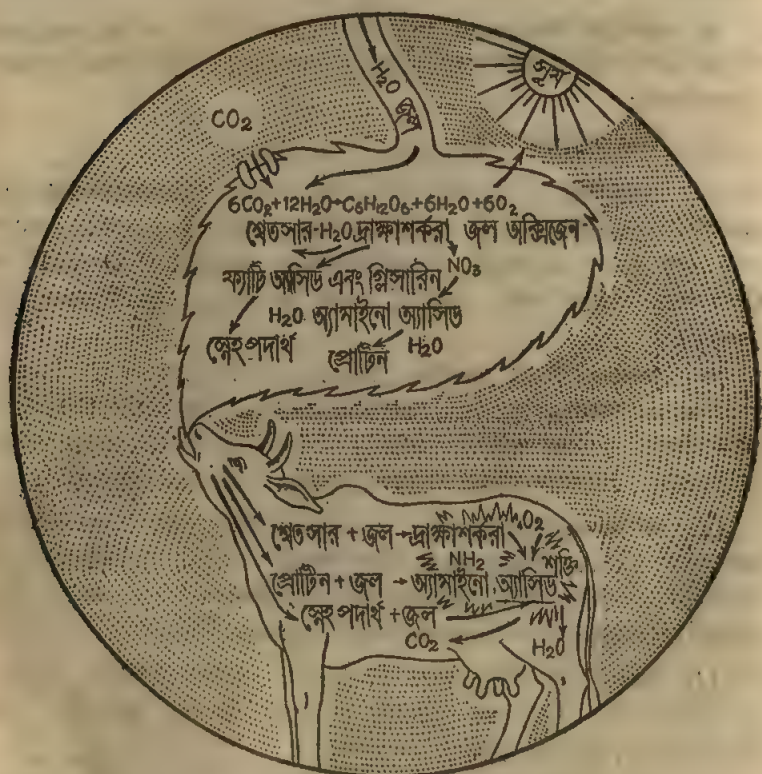 H₂O জল
সূর্য
CO₂
6CO₂+12H₂O→C₆H₁₂O₆+6H₂O+6O₂
শ্বেতসার-H₂O দ্রাক্ষাশর্করা জল অক্সিজেন
ফ্যাটি অ্যাসিড এবং গ্লিসারিন NO₃
H₂O অ্যামাইনো অ্যাসিড
স্নেহ পদার্থ প্রোটিন H₂O
শ্বেতসার + জল → দ্রাক্ষাশর্করা O₂
NH₂ শক্তি
প্রোটিন + জল → অ্যামাইনো অ্যাসিড
স্নেহ পদার্থ + জল
CO₂ H₂O